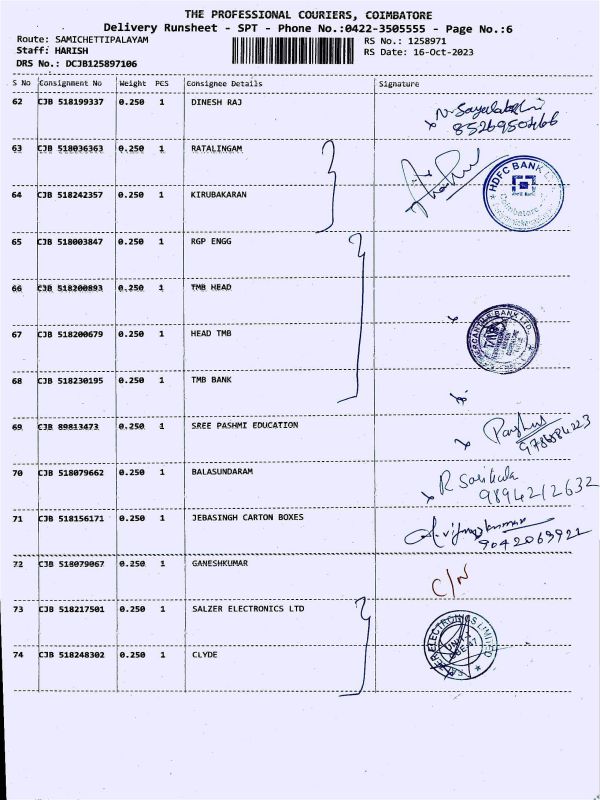 THE PROFESSIONAL COURIERS, COIMBATORE
Delivery Runsheet - SPT - Phone No.:0422-3505555 - Page No.:6
Route: SAMICHETTIPALAYAM
RS No.: 1258971
Staff: HARISH
RS Date: 16-Oct-2023
DRS No.: DCJB125897106
S No Consignment No Weight PCS Consignee Details Signature
62 CJB 518199337 0.250 1 DINESH RAJ
63 CJB 518036363 0.250 1 RATALINGAM
64 CJB 518242357 0.250 1 KIRUBAKARAN
HDFC BANK
Coimbatore
65 CJB 518003847 0.250 1 RGP ENGG
66 CJB 518200893 0.250 1 TMB HEAD
67 CJB 518200679 0.250 1 HEAD TMB
MERCANTILE BANK LTD
68 CJB 518230195 0.250 1 TMB BANK
69 CJB 89813473 0.250 1 SREE PASHMI EDUCATION
70 CJB 518079662 0.250 1 BALASUNDARAM
9894212632
71 CJB 518156171 0.250 1 JEBASINGH CARTON BOXES
9042063921
72 CJB 518079067 0.250 1 GANESHKUMAR
C/N
73 CJB 518217501 0.250 1 SALZER ELECTRONICS LTD
ELECTRONICS LIMITED
74 CJB 518248302 0.250 1 CLYDE